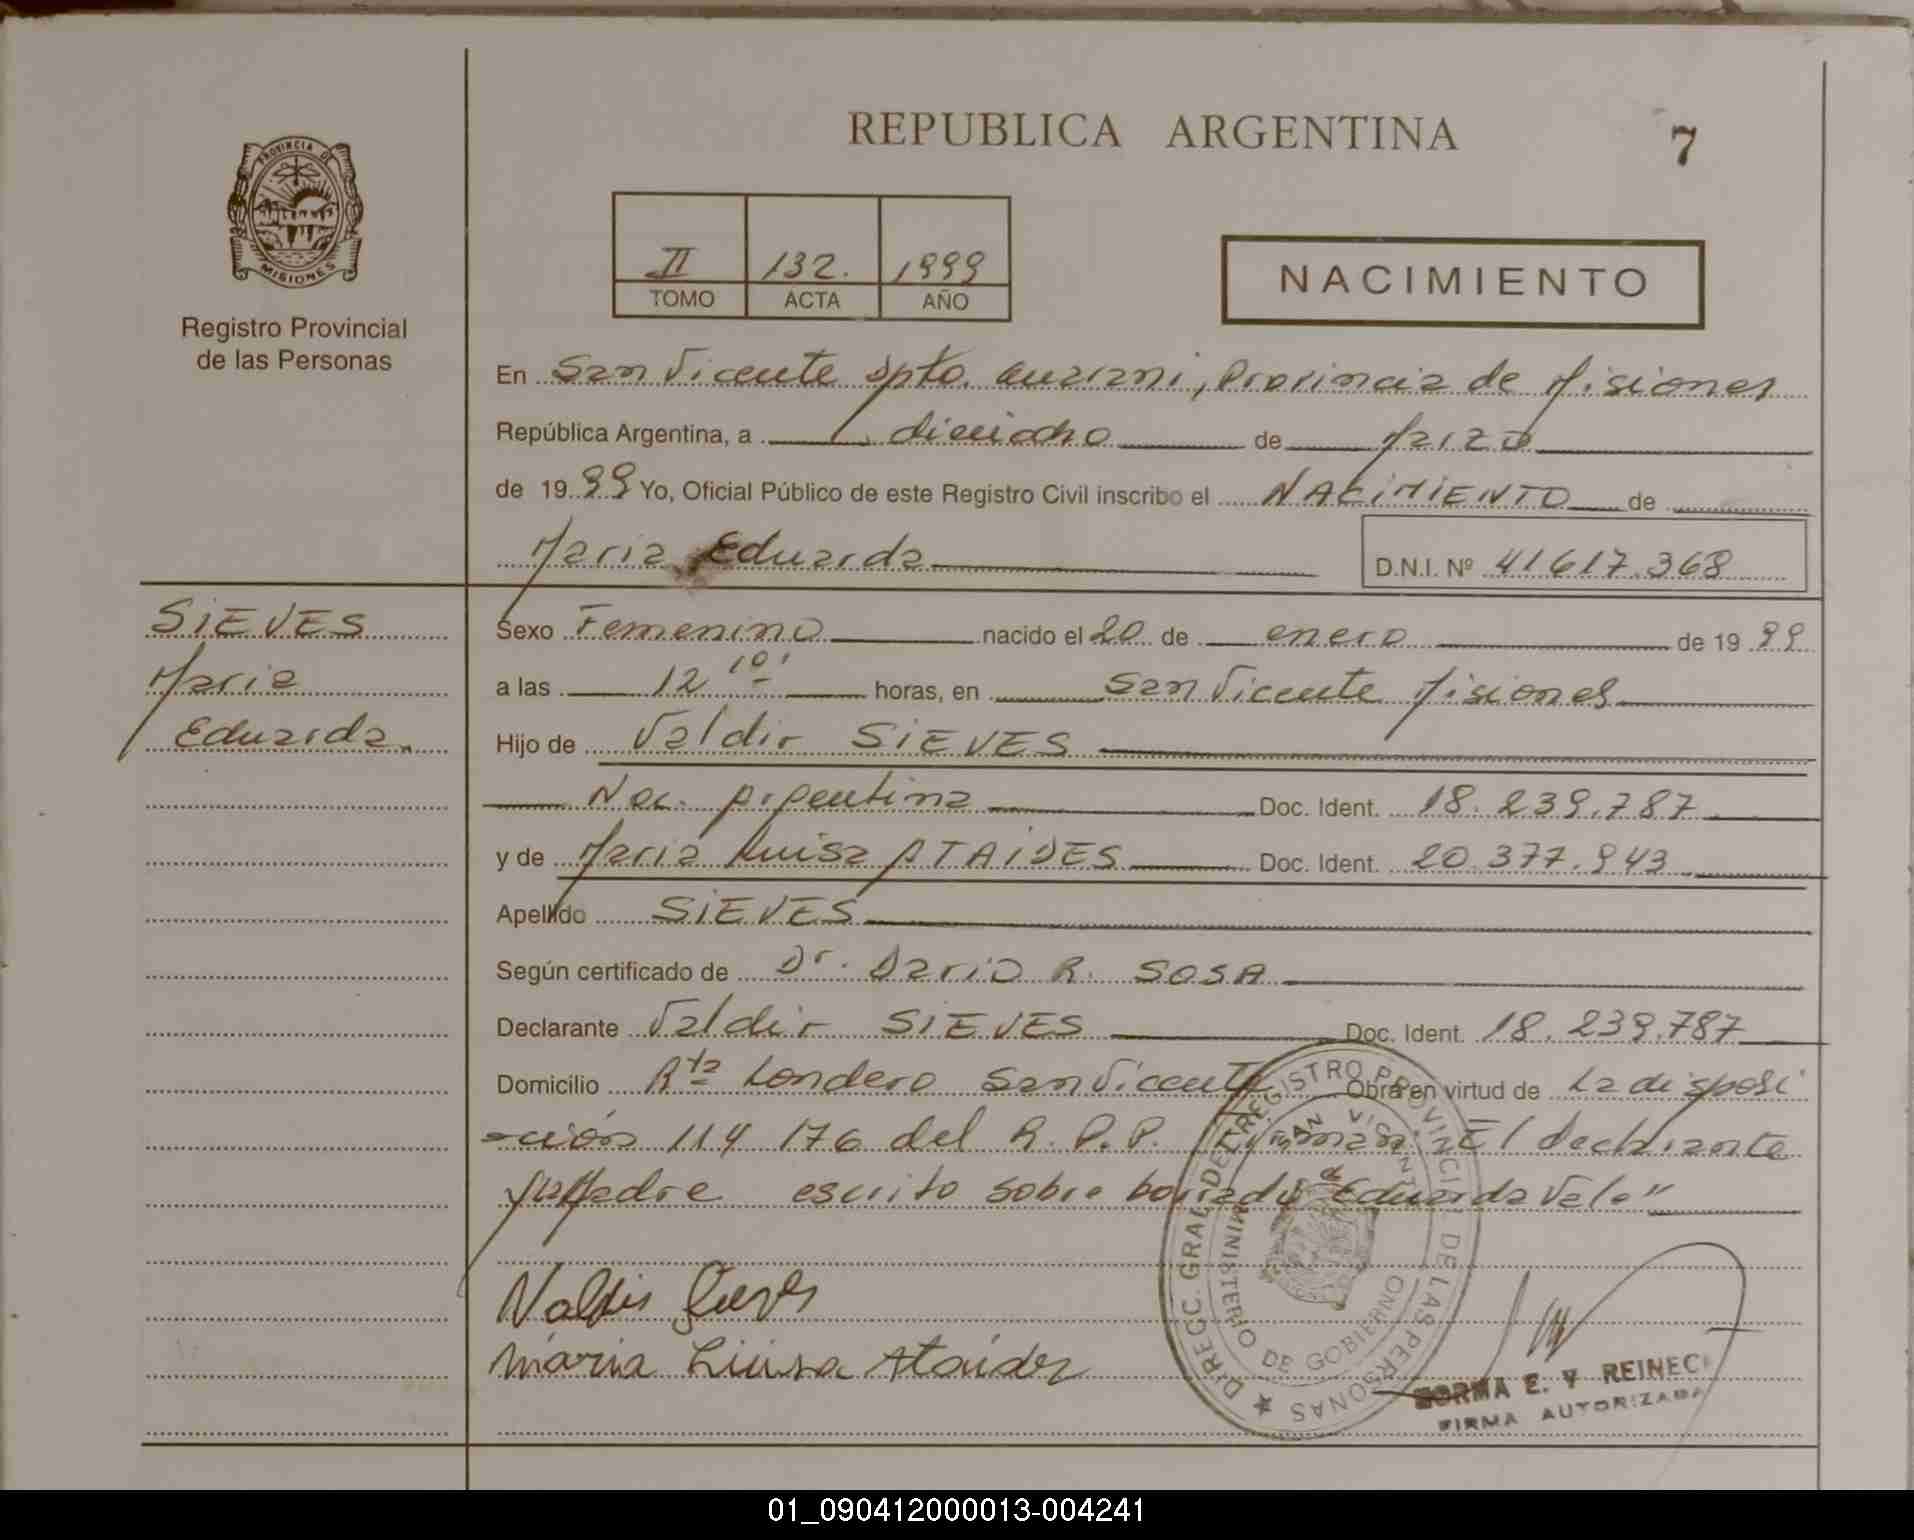 REPUBLICA ARGENTINA
7
PROVINCIA DE
MISIONES
Registro Provincial
de las Personas
II 132. 1999
TOMO ACTA AÑO
NACIMIENTO
En San Vicente Dpto. Guarani, Provincia de Misiones
República Argentina, a dieciocho de Marzo
de 1999 Yo, Oficial Público de este Registro Civil inscribo el NACIMIENTO de
Maria Eduarda D.N.I. Nº 41617.368
SIEVES
Maria
Eduarda.
Sexo Femenino nacido el 20 de enero de 1999
a las 12 10' horas, en San Vicente Misiones
Hijo de Valdir SIEVES
Nac. Argentina Doc. Ident. 18.239.787
y de Maria Luisa ATAIDES Doc. Ident. 20.377.943
Apellido SIEVES
Según certificado de Dr. Dario R. SOSA
Declarante Valdir SIEVES Doc. Ident. 18.239.787
Domicilio Rta Londero San Vicente Obra en virtud de La disposi
ción 114 176 del R.P.P. Firman El declarante
y la Madre escrito sobre borrado "Eduarda Vale"
Valdir Sieves
Maria Luisa Ataides
DIRECC. GRAL. DEL REGISTRO PROVINCIAL DE LAS PERSONAS
SAN VICENTE
MINISTERIO DE GOBIERNO
NORMA E. V REINECK
FIRMA AUTORIZADA
01_090412000013-004241